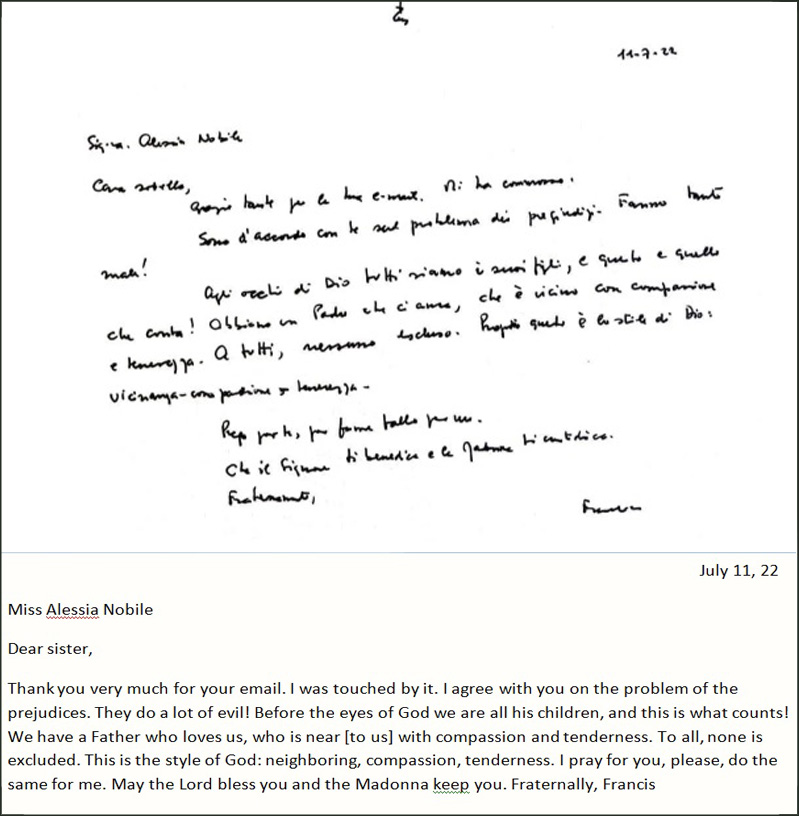 11-7-22
Sig.na. Alessia Nobile
Cara sorella,
grazie tante per la tua e-mail. Mi ha commosso.
Sono d'accordo con te sul problema dei pregiudizi. Fanno tanto
male!
Agli occhi di Dio tutti siamo i suoi figli, e questo è quello
che conta! Abbiamo un Padre che ci ama, che è vicino con compassione
e tenerezza. A tutti, nessuno escluso. Proprio questo è lo stile di Dio:
vicinanza-compassione e tenerezza-
Prego per te, per favore fallo per me.
Che il Signore ti benedica e la Madonna ti custodisca.
Fraternamente,
Francesco
July 11, 22
Miss Alessia Nobile
Dear sister,
Thank you very much for your email. I was touched by it. I agree with you on the problem of the
prejudices. They do a lot of evil! Before the eyes of God we are all his children, and this is what counts!
We have a Father who loves us, who is near [to us] with compassion and tenderness. To all, none is
excluded. This is the style of God: neighboring, compassion, tenderness. I pray for you, please, do the
same for me. May the Lord bless you and the Madonna keep you. Fraternally, Francis